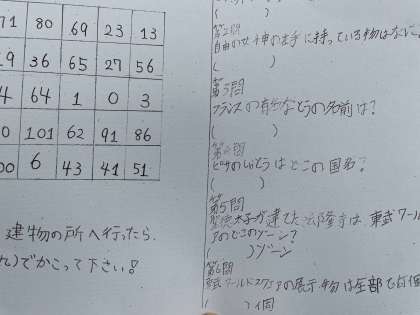 71 80 69 23 13
19 36 65 27 56
4 64 1 0 3
0 101 62 91 86
00 6 43 41 51
建物の所へ行ったら、
れ)でかこって下さい!
( )
第2問
自由の女神の右手に持っている物はなに
( )
第3問
フランスの有名なとうの名前は?
( )
第4問
ピサのしゃとうはどこの国名?
( )
第5問
聖徳太子が建てた法隆寺は、東武ワール
アのどこのゾーン?
( )ゾーン
第6問
東武ワールドスクウェアの展示物は全部で何個
( )個